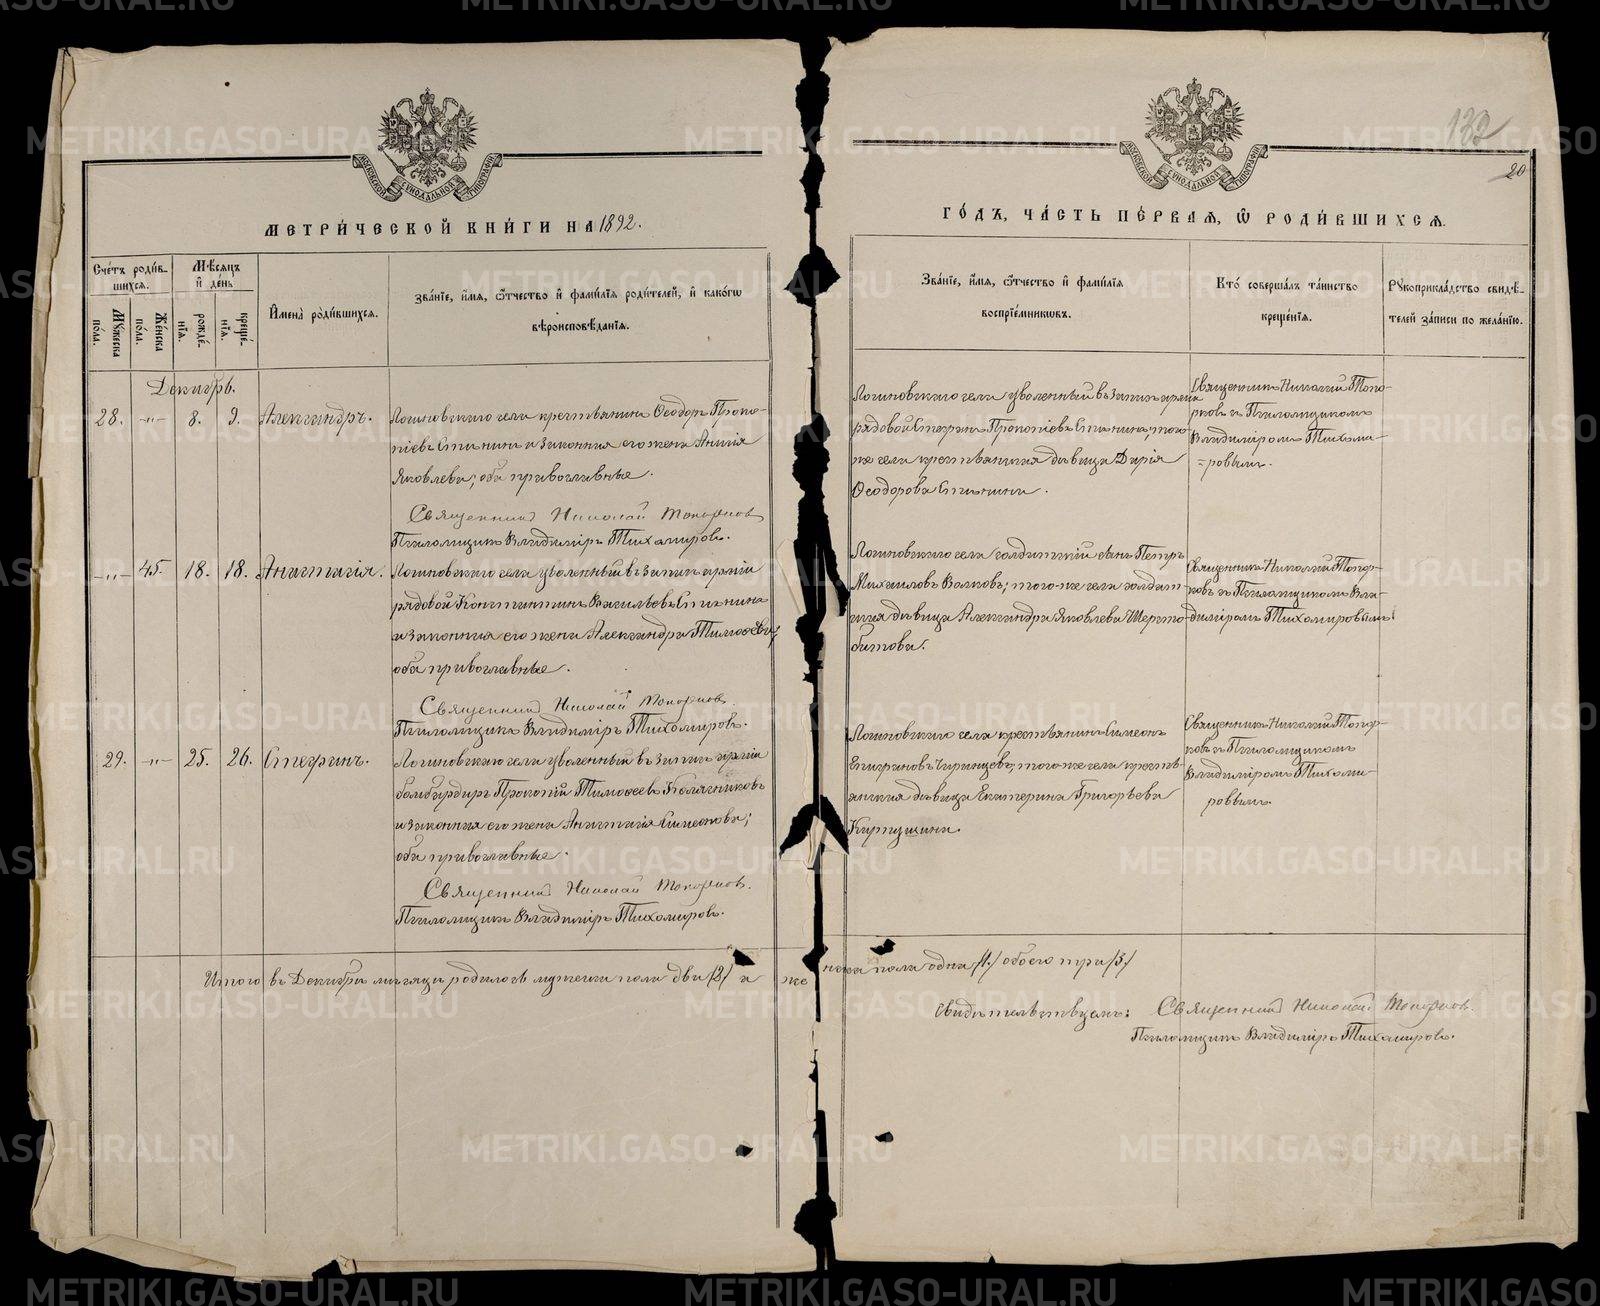 132
20
МЕТРИ́ЧЕСКОЙ КНИ́ГИ НА 1892.
ГО́ДЪ, ЧА́СТЬ ПЕ́РВАЯ, Ѿ РОДИ́ВШИХСЯ.
Сче́тъ роди́в-
шихся.
Мꙋ́жеска по́ла.
Же́нска по́ла.
Мѣ́сяцъ и҆ де́нь
рожде́нїѧ.
креще́нїѧ.
И҆мена̀ роди́вшихся.
Зва́нїе, и҆́мѧ, ѻ҆́тчество и҆ фами́лїѧ роди́телей, и҆ како́гѡ
вѣроисповѣ́данїѧ.
Зва́нїе, и҆́мѧ, ѻ҆́тчество и҆ фами́лїѧ
воспрїе́мникѡвъ.
Кто̀ соверша́лъ та́инство
креще́нїѧ.
Рꙋкоприкла́дство свидѣ́-
телей за́писи по жела́нїю.
Декабрь.
28. -"- 8. 9. Александръ.
Логиновскаго села крестьянинъ Ѳеодоръ Проко-
піевъ Спинин и законная его жена Анисія
Яковлева; оба православные.
Священникъ Николай Топорковъ
Псаломщикъ Владиміръ Тихомировъ.
Логиновскаго села уволенный въ запас арміи
рядовой Стефанъ Прокопіевъ Спинин; того
же села крестьянская дѣвица Дарія
Ѳеодорова Спинина.
Священникъ Николай Топо-
рковъ съ Псаломщикомъ
Владиміромъ Тихоми-
=ровымъ.
-"- 45. 18. 18. Анастасія.
Логиновскаго села уволенный въ запас арміи
рядовой Константинъ Васильевъ Спинин
и законная его жена Александра Тимоѳеева,
оба православные.
Священникъ Николай Топорковъ.
Псаломщикъ Владиміръ Тихомировъ.
Логиновскаго села солдатскій сынъ Петръ
Михаиловъ Волковъ; того-же села солдат-
ская дѣвица Александра Яковлева Шерсто-
битова.
Священникъ Николай Топор-
ковъ съ Псаломщикомъ Вла-
диміромъ Тихомировымъ.
29. -"- 25. 26. Стефанъ.
Логиновскаго села уволенный въ запас арміи
бомбардиръ Прокопій Тимоѳеевъ Колясниковъ
и законная его жена Анастасія Симеонова;
оба православные.
Священникъ Николай Топорковъ.
Псаломщикъ Владиміръ Тихомировъ.
Логиновскаго села крестьянинъ Симеонъ
Чиринцевъ; того-же села кресть-
янская дѣвица Екатерина Григорьева
Священникъ Николай Топор-
ковъ съ Псаломщикомъ
Владиміромъ Тихоми-
ровымъ.
Итого въ Декабрѣ мѣсяцѣ родилось мужеска пола два /2/ а женска пола одна /1/ обоего три /3/
Свидѣтельствуемъ: Священникъ Николай Топорковъ.
Псаломщикъ Владиміръ Тихомировъ.
METRIKI.GASO-URAL.RU